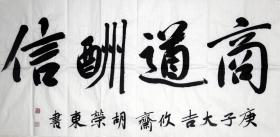 商道酬信
庚子大吉攸齋胡榮東書